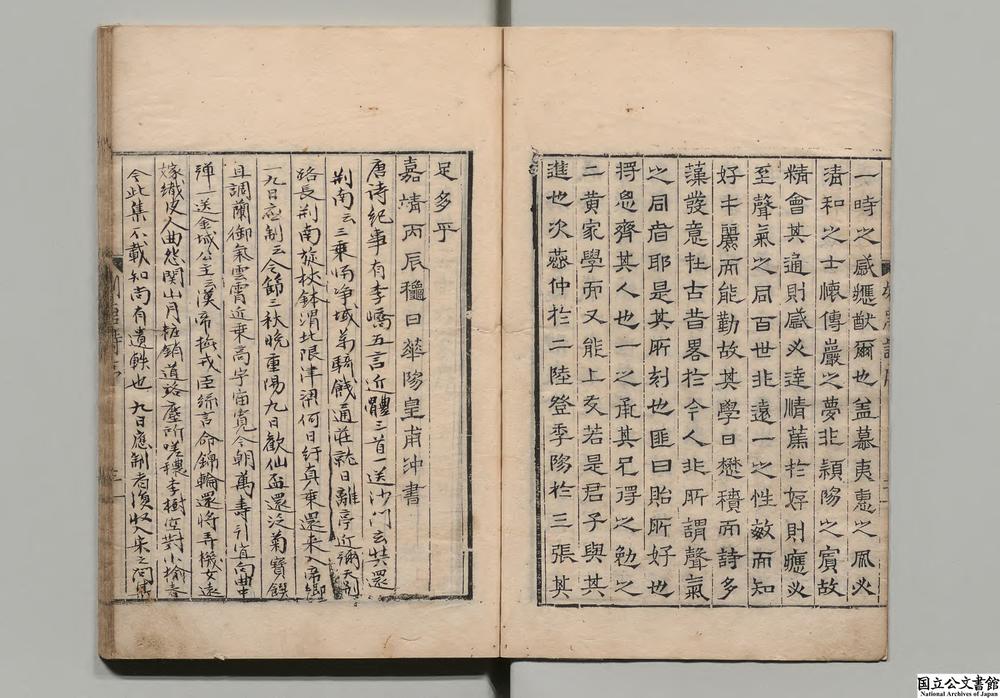 一時之感癧猷爾也蓋慕夷惠之風必
清和之士懷傅巖之夢非穎陽之賓故
精會其通則感必達情薰於好則癧必
至聲氣之同百世非遠一之性敏而知
好丰麗而能勤故其學日懋積而詩多
藻發意在古昔畧於今人非所謂聲氣
之同者耶是其所刻也匪曰貽所好也
將思齊其人也一之承其兄淂之勉之
二黄家學而又能上友若是君子與其
進也次燕仲於二陸登季陽於三張其
足多乎
嘉靖丙辰穐日華陽皇甫沖書
唐诗紀事有李嶠五言近體三首一送沙门云共還
荆南云三乗
路長荆南旋杖鉢渭北限津梁何日紆真乗還来入帝鄉
九日應制云令節三秋晚重陽九日歡仙盃還泛菊寶饌
且調蘭御氣雲霄近乗高宇宙寛今朝萬壽引宜向曲中
彈一送金城公主云漢帝撫戎臣絲言命錦輪還將弄機女遠
嫁織皮人曲怨関山月粧銷道路塵所嗟穠李樹空對小榆春
今此集不載知尚有遺軼也 九日應制者
国立公文書館
National Archives of Japan